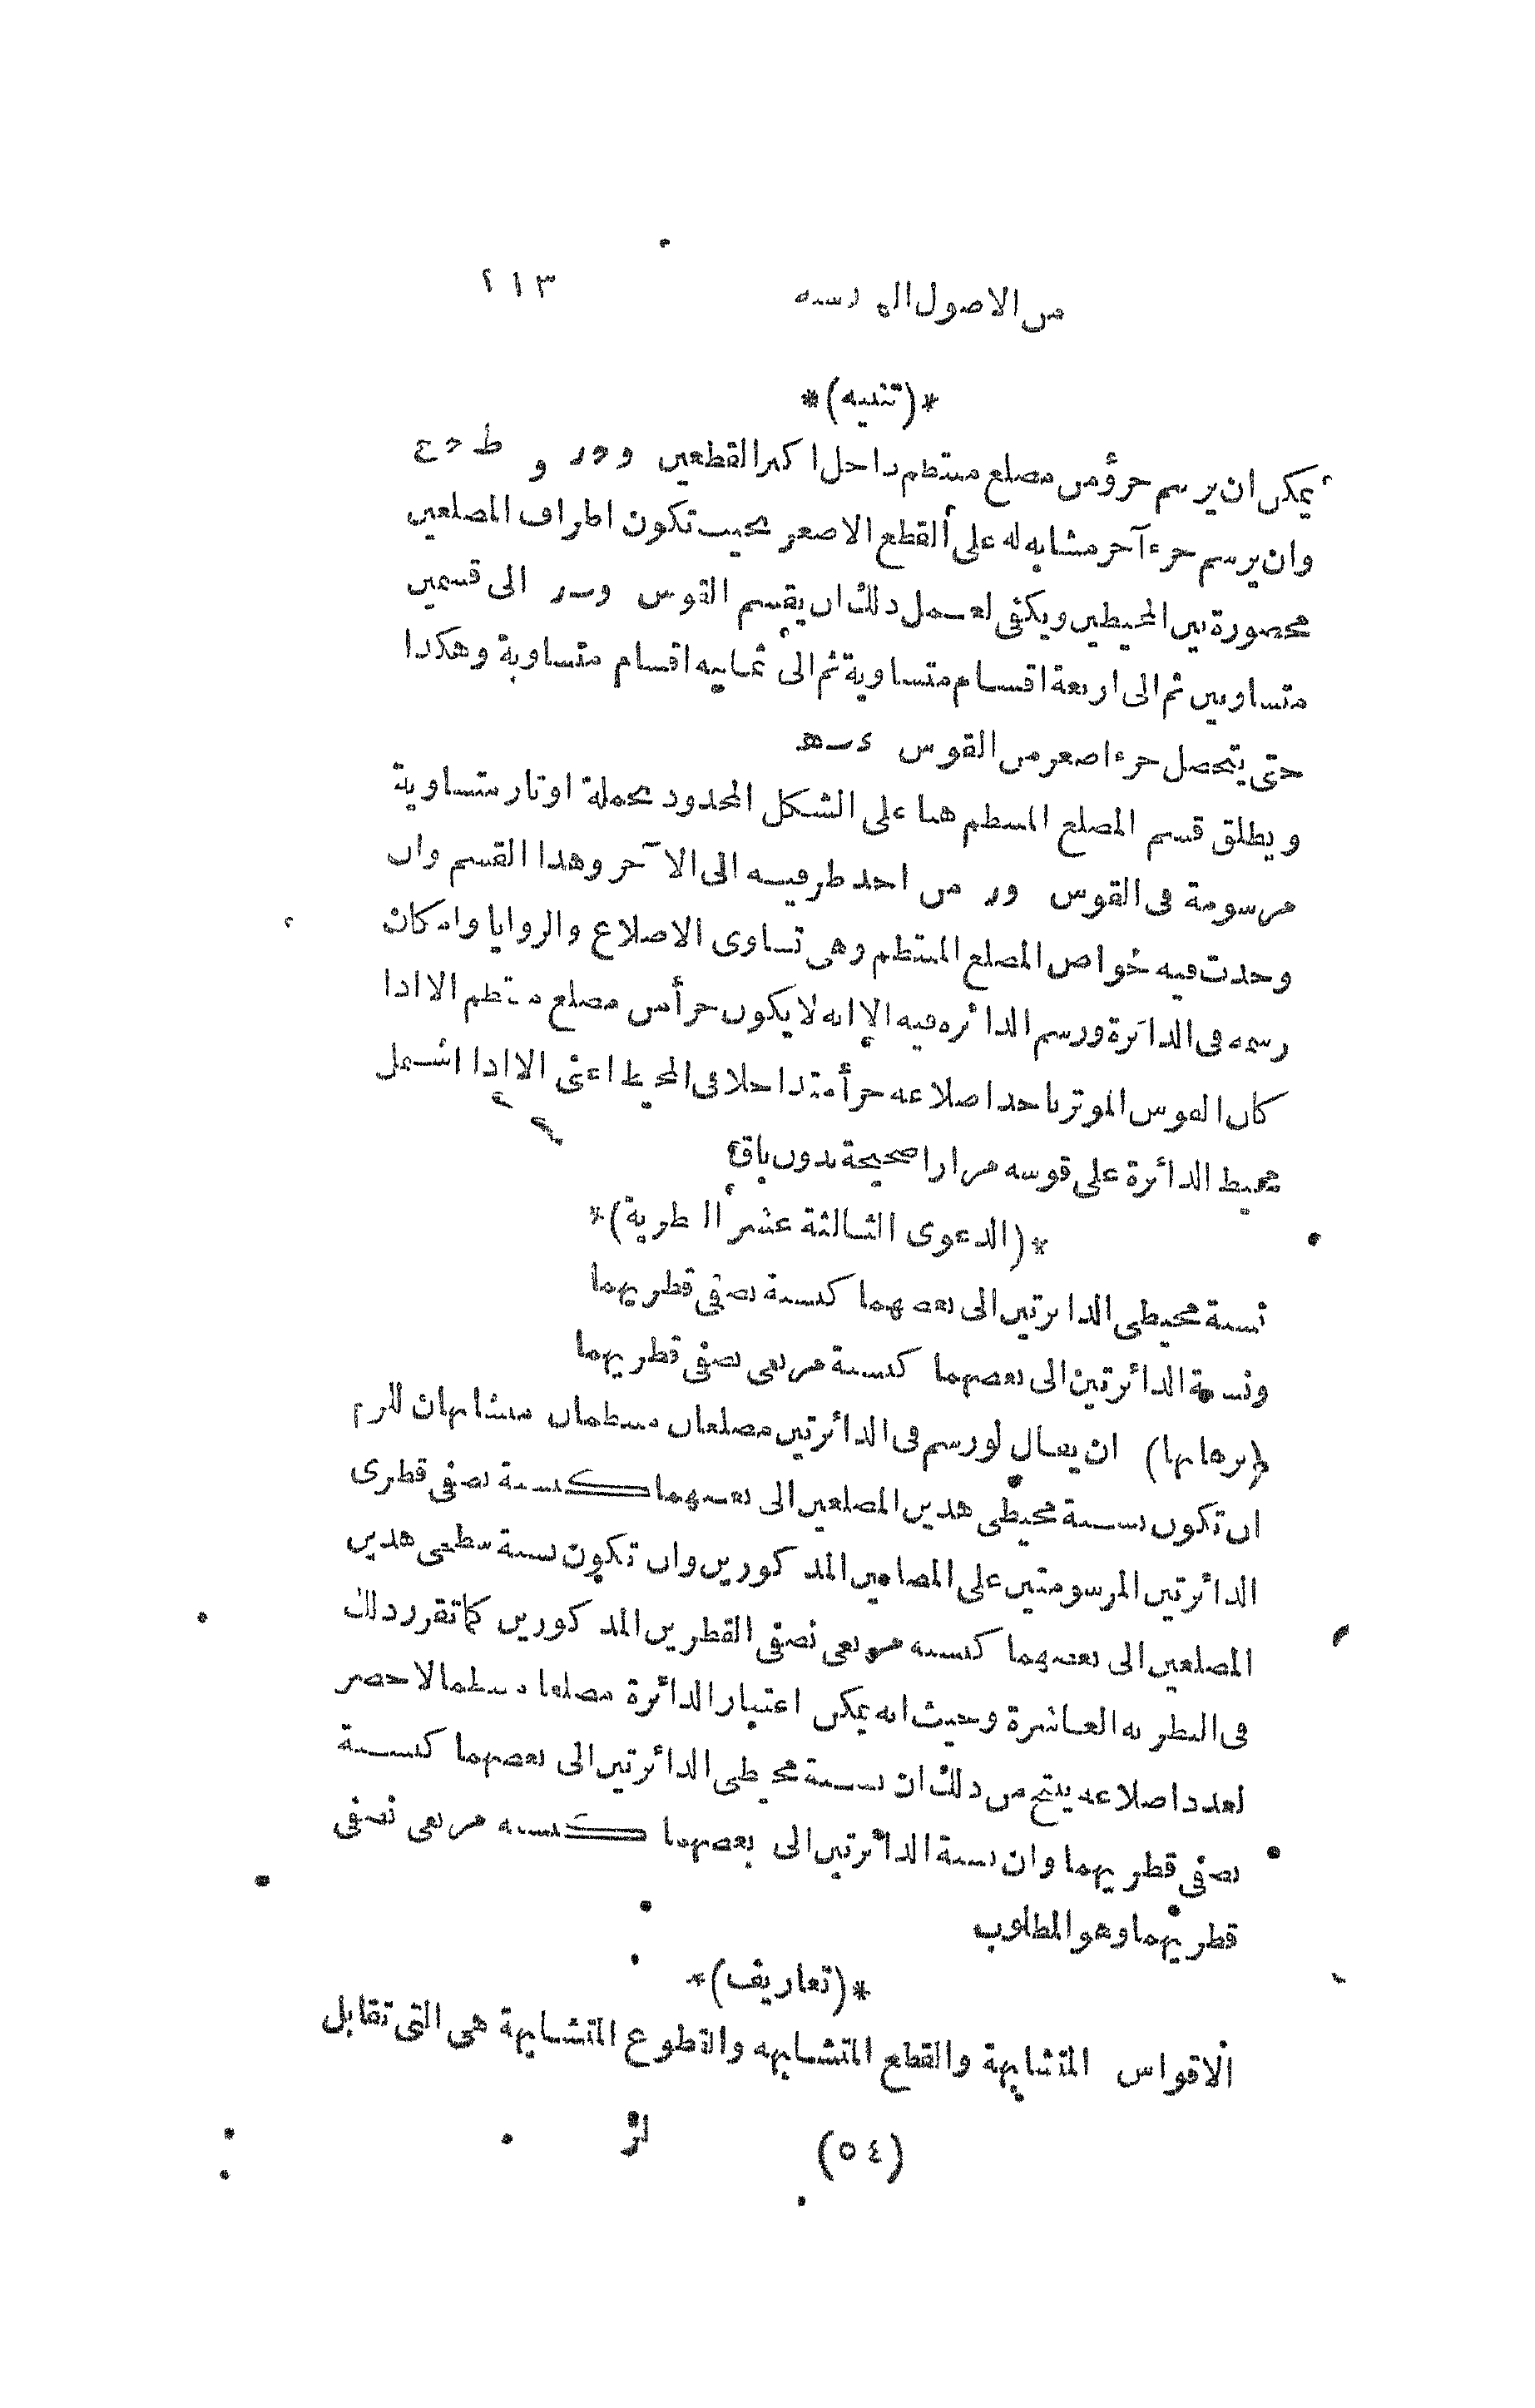 من الاصول الهندسيه ٢١٣
*(تنبيه)*
يمكن ان يرسم جزؤ من مضلع منتظم داخل اكبر القطعين و
وان يرسم جزء آخر مشابه له على القطع الاصغر بحيث تكون اطراف المضلعين
محصورة بين المحيطين ويكفى لعمل ذلك ان يقسم القوس الى قسمين
متساويين ثم الى اربعة اقسام متساوية ثم الى ثمانيه اقسام متساوية وهكذا
حتى يتحصل جزء اصغر من القوس
ويطلق قسم المضلع المنتظم هنا على الشكل المحدود بجملة اوتار متساوية
مرسومة فى القوس من احد طرفيه الى الآخر وهذا القسم وان
وجدت فيه خواص المضلع المنتظم وهى تساوى الاضلاع والزوايا وامكان
رسمه فى الدائرة ورسم الدائره فيه الا انه لا يكون جزأ من مضلع منتظم الا اذا
كان القوس الموتر باحد اضلاعه جزأ متداخلا فى المحيط اعنى الا اذا اشتمل
محيط الدائرة على قوسه مرارا صحيحة بدون باق
*(الدعوى الثالثة عشر النظرية)*
نسبة محيطى الدائرتين الى بعضهما كنسبة نصفى قطريهما
ونسبة الدائرتين الى بعضهما كنسبة مربعى نصفى قطريهما
(برهانها) ان يقال لو رسم فى الدائرتين مضلعان منتظمان متشابهان للزم
ان تكون نسبة محيطى هذين المضلعين الى بعضهما كنسبة نصفى قطرى
الدائرتين المرسومتين على المضلعين المذكورين وان تكون نسبة سطحى هذين
المضلعين الى بعضهما كنسبه مربعى نصفى القطرين المذكورين كما تقرر ذلك
فى النظريه العاشرة وحيث انه يمكن اعتبار الدائرة مضلعا منتظما لا حصر
لعدد اضلاعه ينتج من ذلك ان نسبة محيطى الدائرتين الى بعضهما كنسبة
نصفى قطريهما وان نسبة الدائرتين الى بعضهما كنسبه مربعى نصفى
قطريهما وهو المطلوب
*(تعاريف)*
الاقواس المتشابهة والقطع المتشابهه والقطوع المتشابهة هى التى تقابل
(٥٤)